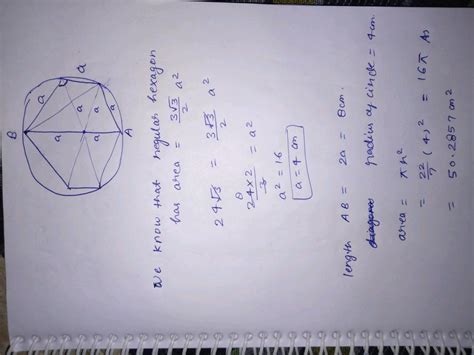 a
a
a
a
a
a
a
B
A
we know that regular hexagon
has area = 3√3/2 a²
24√3 = 3√3/2 a²
24×2/3 = a²
8
a² = 16
a = 4 cm
length AB = 2a = 8cm.
radius of circle = 4cm.
area = πr²
= 22/7 (4)² = 16π As
= 50.2857 cm²